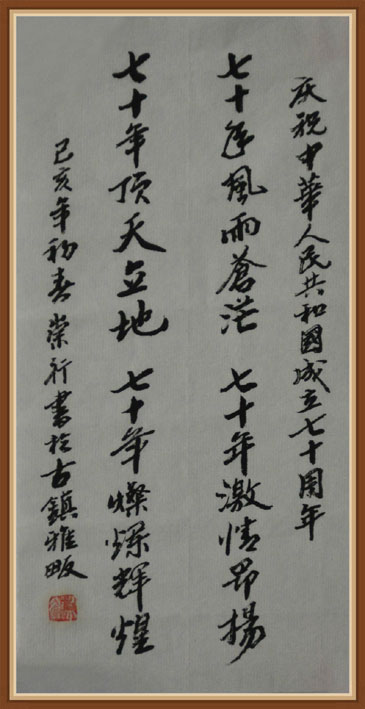 庆祝中華人民共和國成立七十周年
七十年風雨蒼茫 七十年激情昂揚
七十年顶天立地 七十年燦爍輝煌
己亥年初春 崇行書於古鎮雅畈